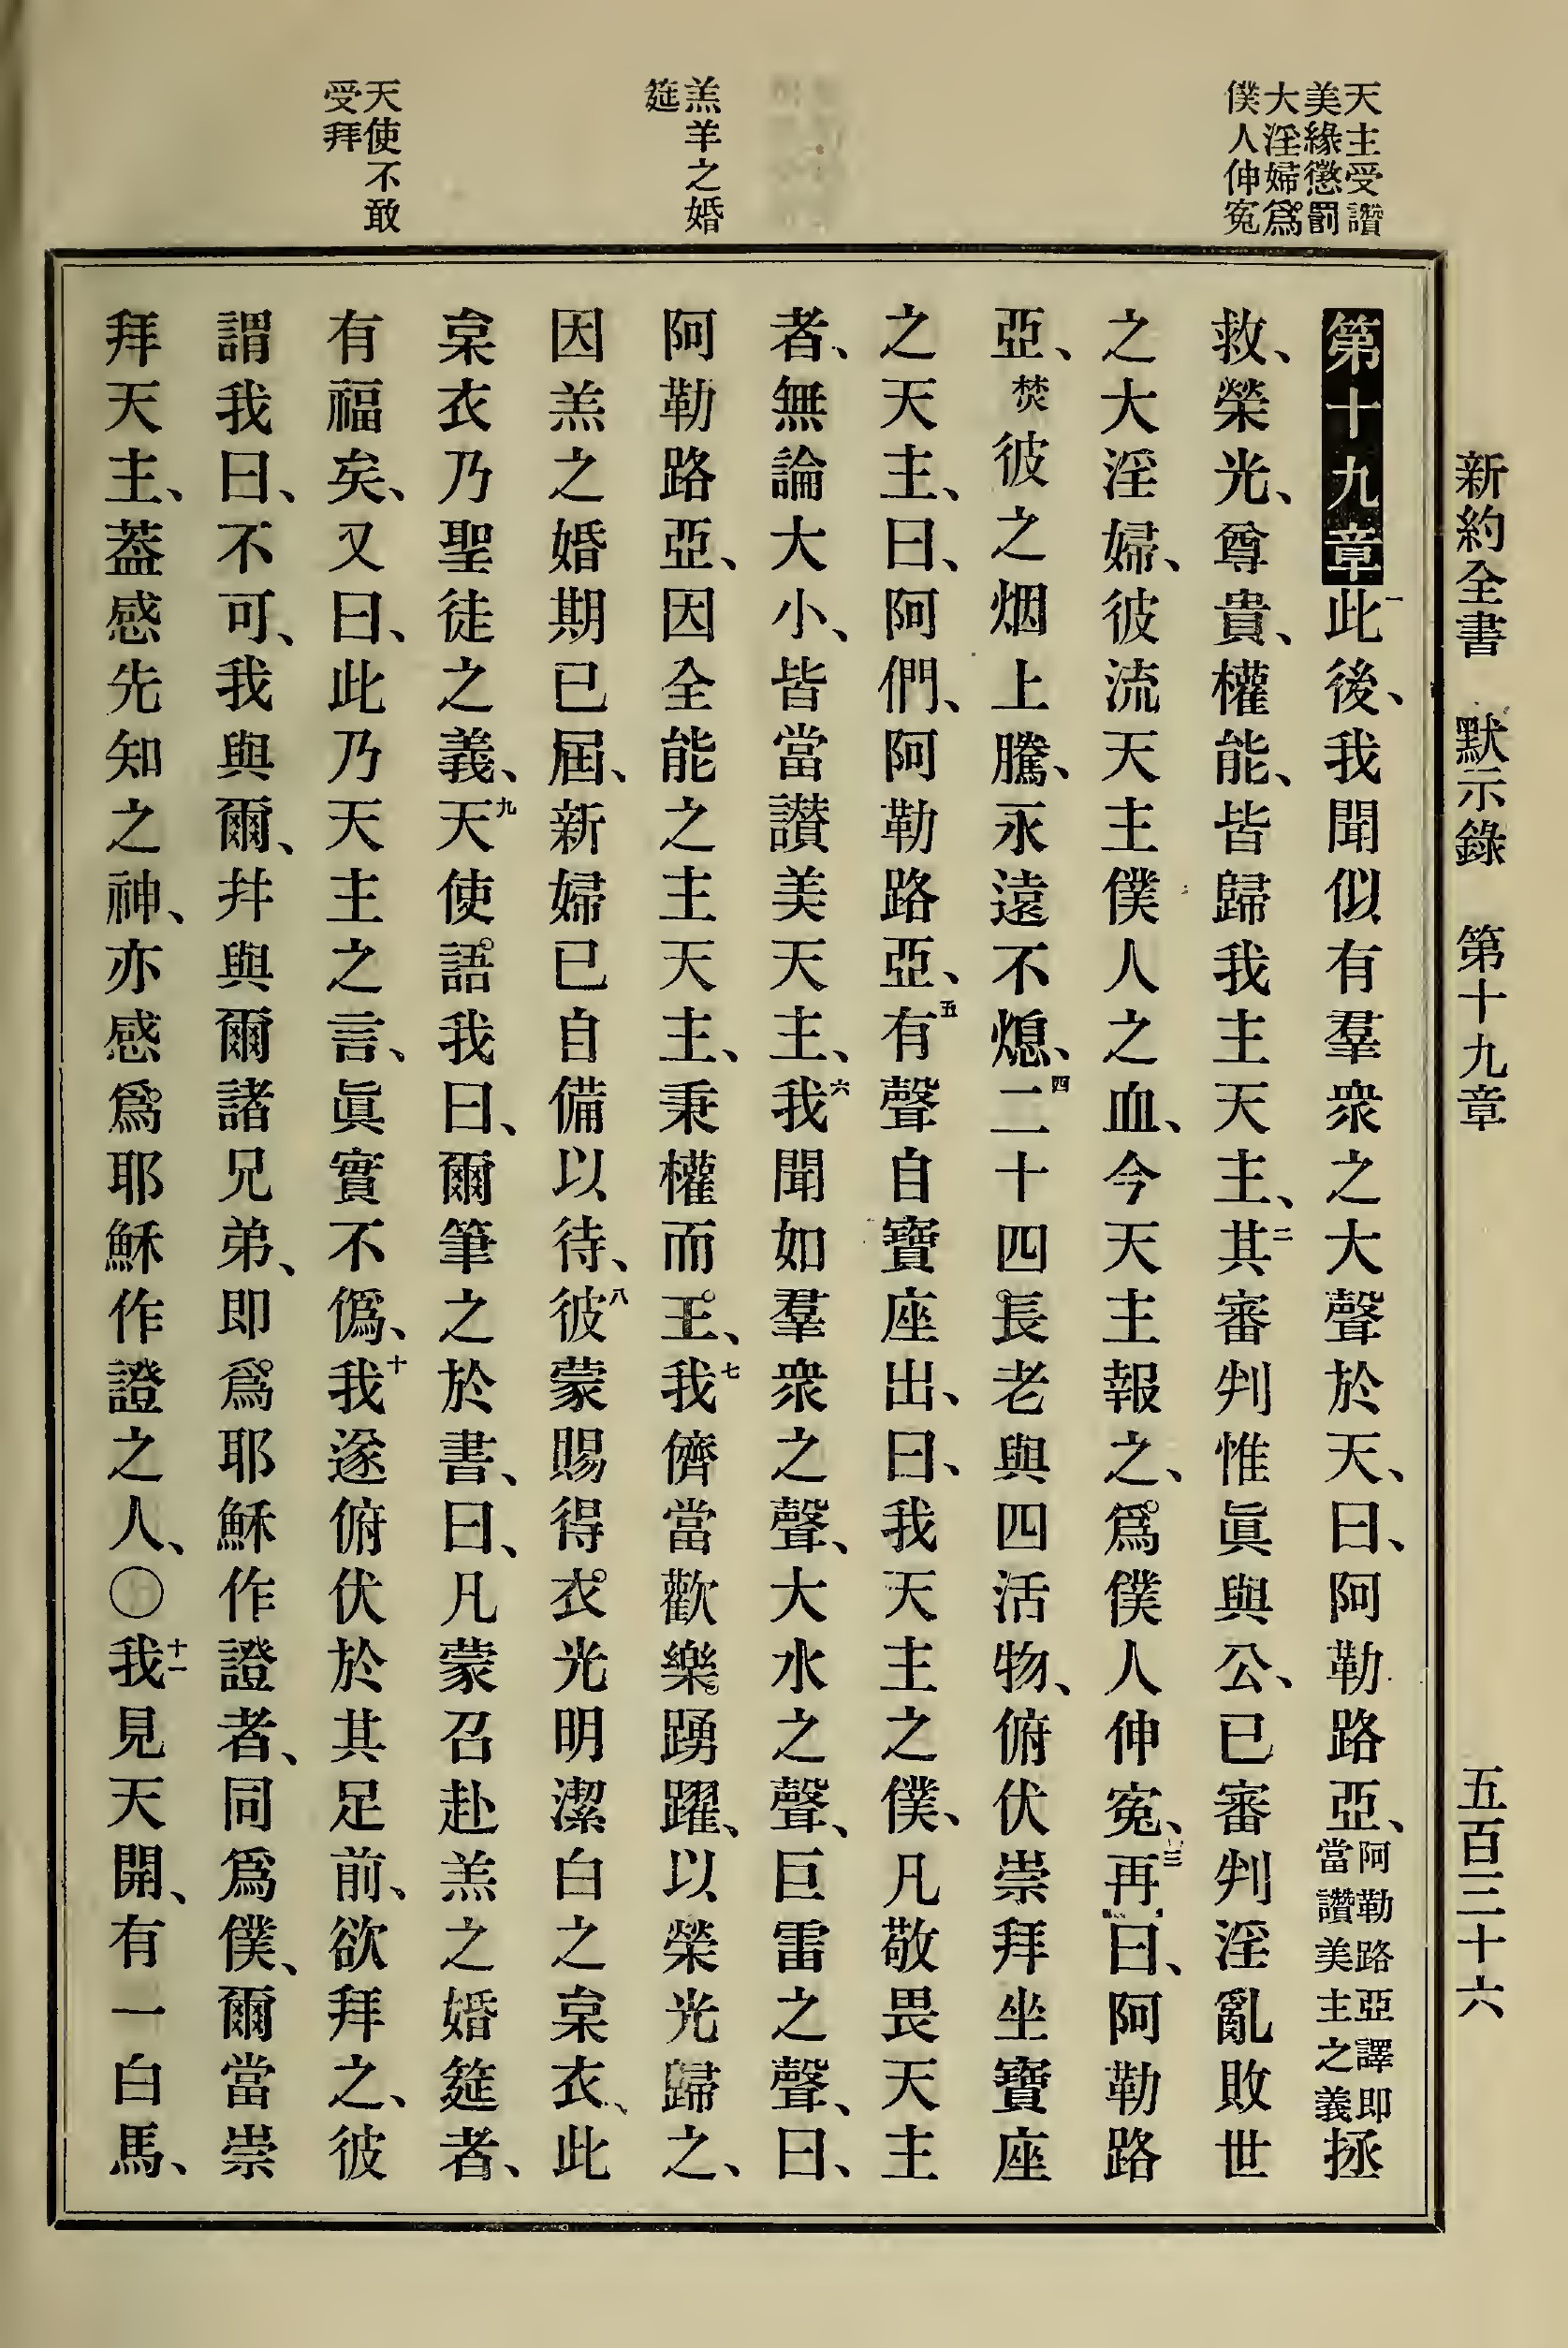 新約全書　默示錄　第十九章　五百三十六
天主受讚
美緣懲罰
大淫婦爲
僕人伸寃
羔羊之婚
筵
天使不敢
受拜
第十九章一此後、我聞似有羣衆之大聲於天、曰、阿勒路亞、阿勒路亞譯即當讚美主之義拯
救、榮光、尊貴、權能、皆歸我主天主、二其審判惟眞與公、已審判淫亂敗世
之大淫婦、彼流天主僕人之血、今天主報之、爲僕人伸寃、三再曰、阿勒路
亞、焚彼之烟上騰、永遠不熄、四二十四長老與四活物、俯伏崇拜坐寶座
之天主、曰、阿們、阿勒路亞、五有聲自寶座出、曰、我天主之僕、凡敬畏天主
者、無論大小、皆當讃美天主、六我聞如羣衆之聲、大水之聲、巨雷之聲、曰、
阿勒路亞、因全能之主天主、秉權而王、七我儕當歡樂踴躍、以榮光歸之、
因羔之婚期已屆、新婦已自備以待、八彼蒙賜得衣光明潔白之枲衣、此
枲衣乃聖徒之義、九天使語我曰、爾筆之於書、曰、凡蒙召赴羔之婚筵者、
有福矣、又曰、此乃天主之言、眞實不僞、十我遂俯伏於其足前、欲拜之、彼
謂我曰、不可、我與爾、幷與爾諸兄弟、即爲耶穌作證者、同爲僕、爾當崇
拜天主、葢感先知之神、亦感爲耶穌作證之人、〇十一我見天開、有一白馬、